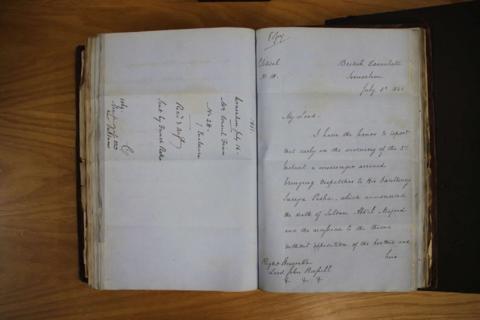 Jerusalem July 16.
Mr Consul Finn
No 28.
1 Inclosure
Sent by French
Copy
British Consulate
Jerusalem
July 8th 1861
My Lord.
I have the honor to report
that early on the morning of the 3d
Instant a messenger arrived
bringing despatches to His Excellency
Sureya Pasha, which announced
the death of Sultan Abd'l Mejeed
and the accession to the throne
without opposition of the brother and
Right Honorable
Lord John Russell
&. &. &.